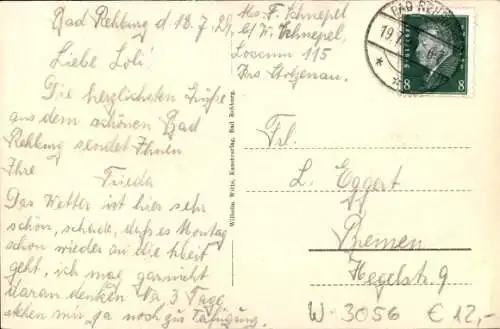 Bad Rehburg d 18.7.29.
Liebe Loli!
Die herzlichsten Grüße
aus dem schönen Bad
Rehburg sendet Ihnen
Ihre
Frieda
Das Wetter ist hier sehr
schön, schade, daß es Montag
schon wieder an die Arbeit
geht, ich mag garnicht
daran denken Na, 3 Tage
stehen mir ja noch zu Verfügung.
Abs. F. Schnepel
b/ W. Schnepel,
Loccum 115
Krs Stolzenau.
Wilhelm Witte, Kunstverlag, Bad Rehburg.
BAD REHBURG
19.7.
8 8
Frl.
L. Eggert
Bremen
Hegelstr. 9
W-3056 € 12,-